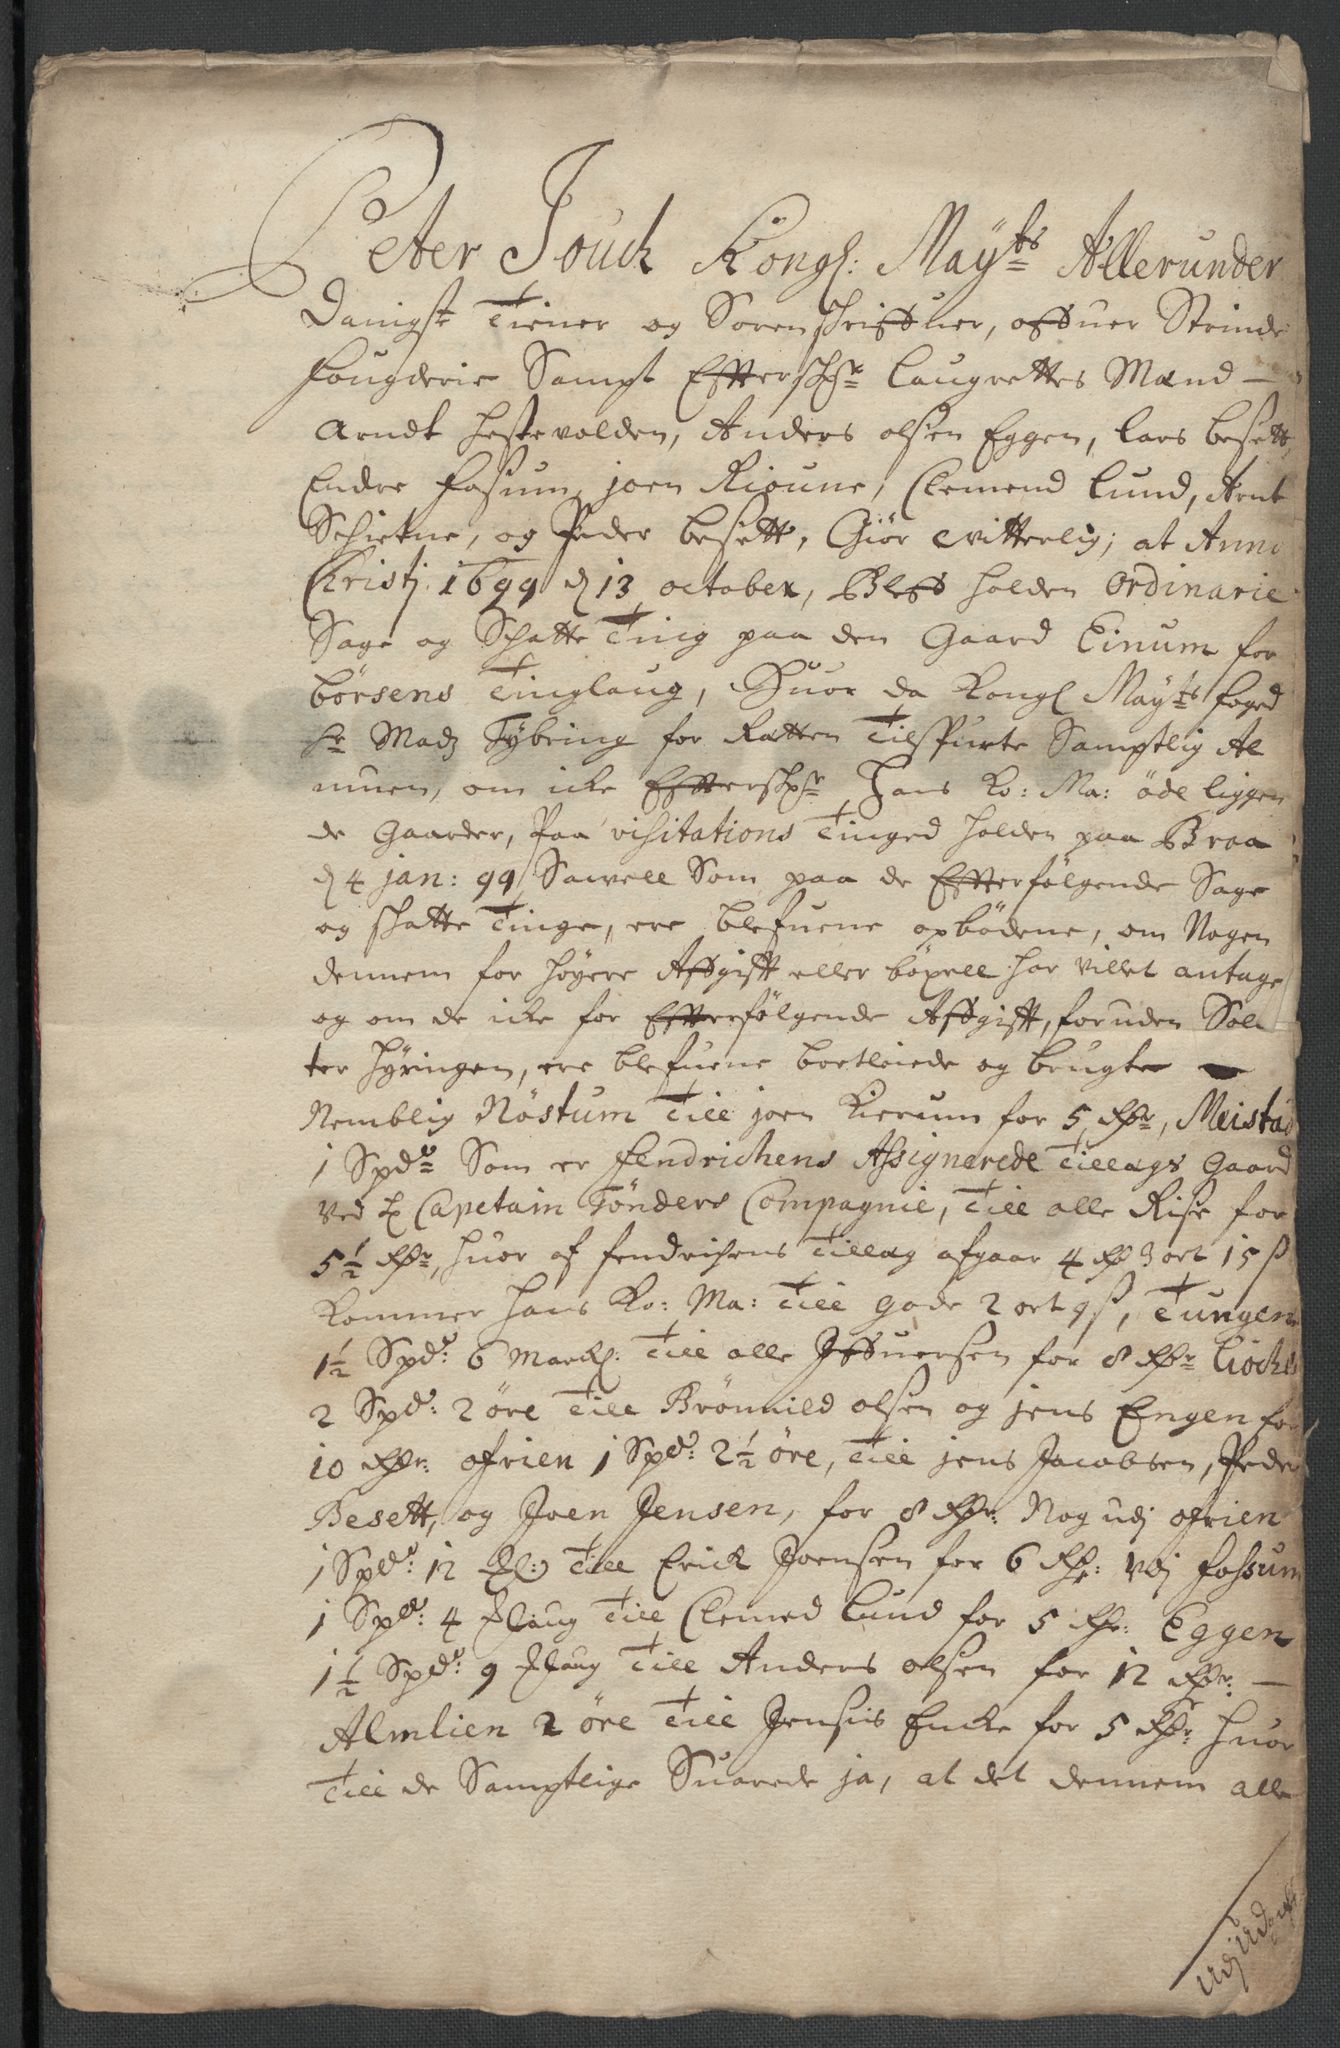 Peter Jouch Kongl: Mayts Allerunder
Danigste Tiener og Sorenschriffuer, offuer Strinde
fougderie Sampt Effterschr: Laugrettes Mænd —
Arndt hestevolden, Anders olsen Eggen, Lars besett,
Endre fosum, joen Rioune, Clemend Lund, Arnt
Schietne, og Peder besett, Giør vitterlig; at Anno
Christj 1699 d 13 october, Bleff holden ordinarie
Sage og Schatte Ting paa den Gaard Einum for
børsens Tinglaug, Huor da Kongl Mayts foged
Hr Madz Tybring for Retten Tilspurte Samptlig Al
muen, om icke Effterschr: Hans Ko: Ma: øde liggen
de Gaarder, Paa visitations Tinged holden paa Braa
d 4 jan: 99 Sawell Som paa de Effterfølgende Sage
og schatte Tinge, ere blefuene opbødene, om Nogen
dennem for høyere Affgifft eller bøxell har villet antage
og om de icke for Effterfølgende Affgifft, foruden Sol
ter hÿringen, ere blefuene bortleiede og brugte —
Nemblig Nøstum Till joen Kierum for 5 Rdr, Meistad
1 Spd Som er fendrichens Assignerede Tillægs Gaard
ved Capetain Tønders Compagnie, Till alle Rise for
5½ Rdr, huor af fendrichens Tillæg afgaar 4 Rd 3 ort 15 s
kommer hans Ko: Ma: Till gode 2 ort 9 s, Tungen
1½ Spd: 6 Markl: Till alle Iffuersen for 8 Rdr
2 Spd: 2 øre Till Brønnild olsen og jens Engen for
10 Rdr: ofrien 1 Spd: 2½ øre, Till jens Jacobsen, Peder
Besett, og Joen Jensen, for 8 Rdr: Nog udj ofrien
1 Spd: 12 Till Erick Joensen for 6 Rdr: vdj fossum
1 Spd: 4 Till Clemed Lund for 5 Rdr: Eggen
1½ Spd: 9 Till Anders olsen for 12 Rdr: —
Almlien 2 øre Till Jensis Encke for 5 Rdr huor
Till de Samptlige Suarede ja, at det dennem alle